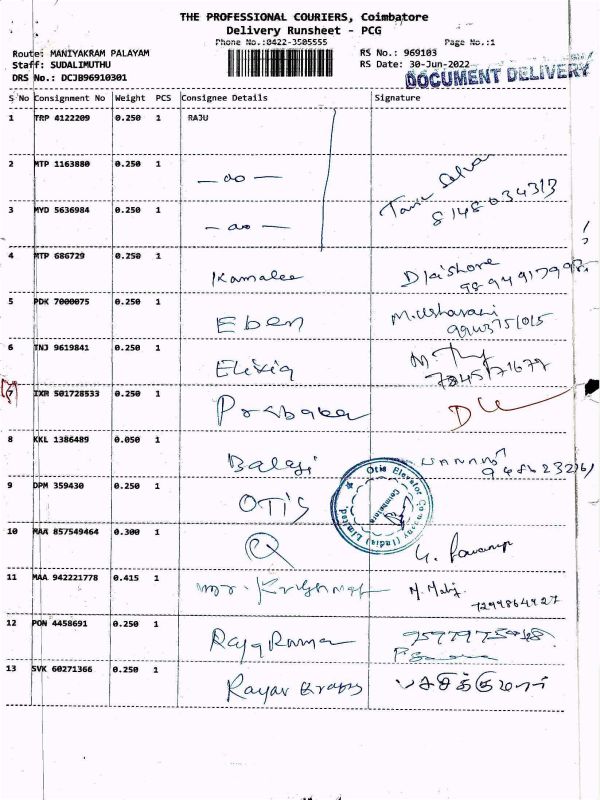 THE PROFESSIONAL COURIERS, Coimbatore
Delivery Runsheet - PCG
Phone No.:0422-3505555 Page No.:1
Route: MANIYAKRAM PALAYAM RS No.: 969103
Staff: SUDALIMUTHU RS Date: 30-Jun-2022
DRS No.: DCJB96910301 DOCUMENT DELIVERY
S No Consignment No Weight PCS Consignee Details Signature
1 TRP 4122209 0.250 1 RAJU
2 MTP 1163880 0.250 1 - do -
8148034313
3 MYD 5636984 0.250 1 - do -
4 MTP 686729 0.250 1 Kamalee D Kishore
5 PDK 7000075 0.250 1 Eben M.Usharani
9943751015
6 TNJ 9619841 0.250 1
7845171679
7 IXR 501728533 0.250 1 Prabakar
8 KKL 1386489 0.050 1 Balaji
9486232261
9 DPM 359430 0.250 1 OTIS
Otis Elevator Company (India) Limited
Coimbatore
10 MAA 857549464 0.300 1
11 MAA 942221778 0.415 1 mr. Krishnan
7299864927
12 PON 4458691 0.250 1 Raja Kumar
13 SVK 60271366 0.250 1